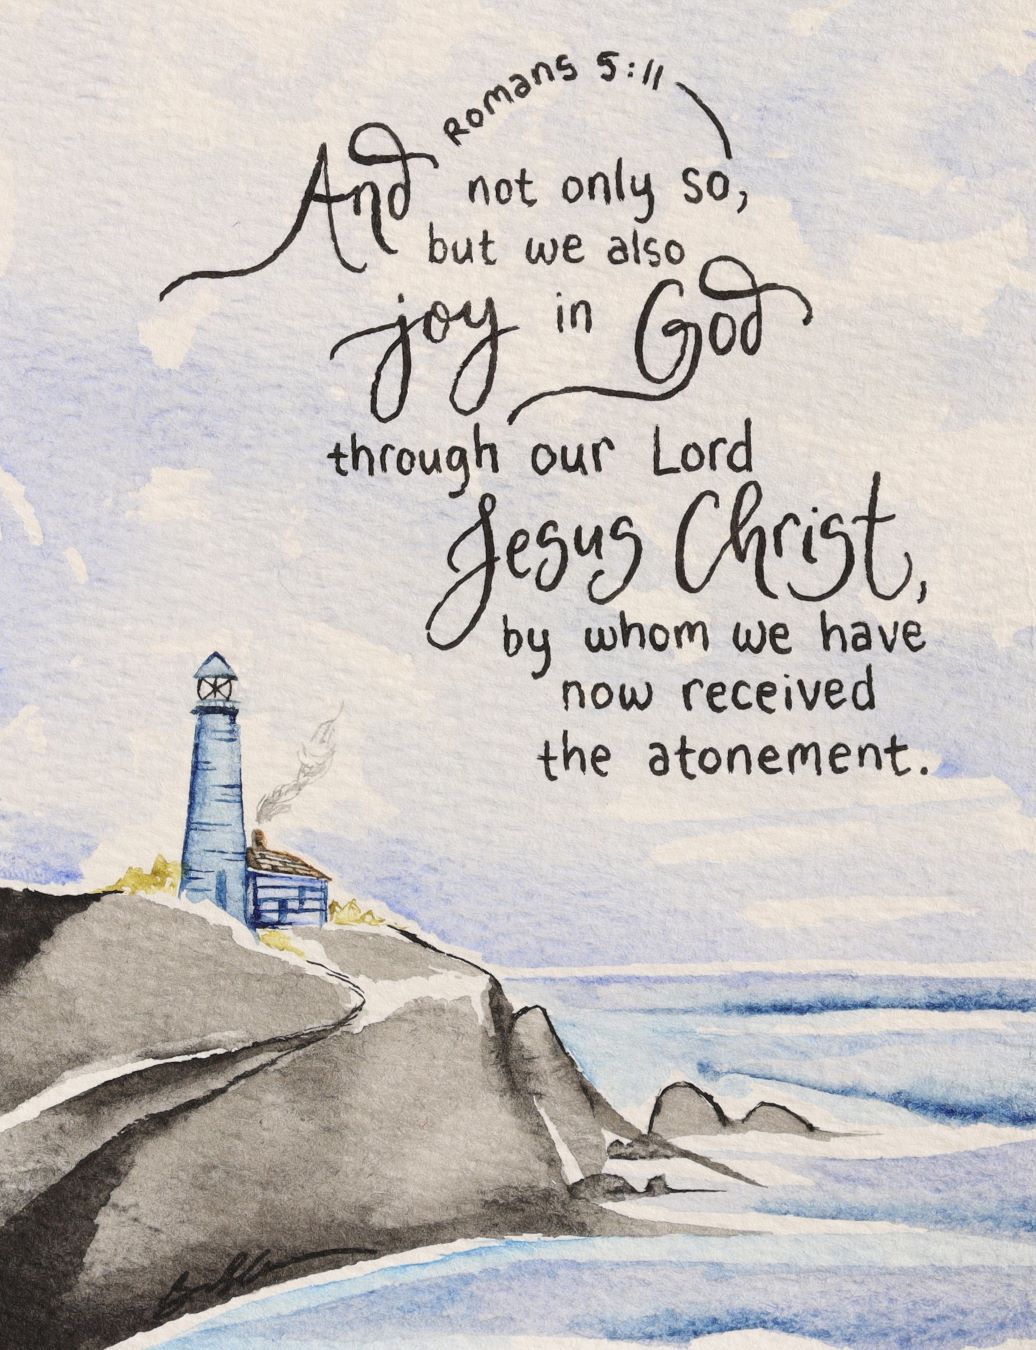 Romans 5:11
And not only so,
but we also
joy in God
through our Lord
Jesus Christ,
by whom we have
now received
the atonement.